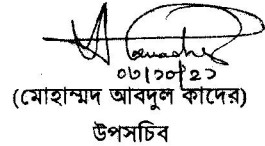 ০৩/১০/২১
(মোহাম্মদ আবদুল কাদের)
উপসচিব